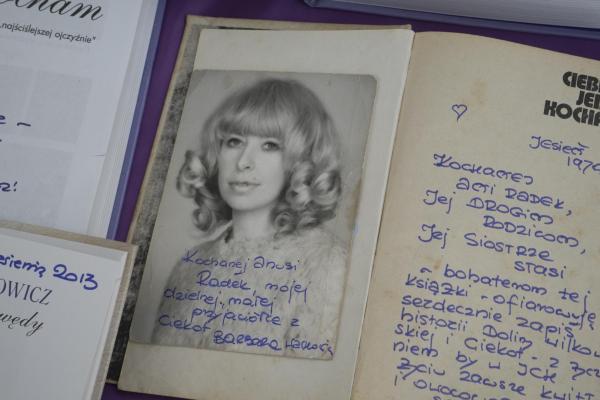 "najściślejszej ojczyźnie"
jesienią 2013
OWICZ
wędy
Kochanej Anusi
Radek, mojej
dzielnej, małej
przyjaciółce z
Ciekot BARBARA
CIEB
JEN
KOCHA
Jesień
Kochanej
Ani Radek,
Jej DROGIM
RODZICOM,
Jej SIOSTRZE
STASI
– bohaterom tej
książki – ofiarowuję
serdecznie zapis
historii Doliny Wilkow
skiej i Ciekot – z życz
niem by w ich
życiu zawsze
i owoco